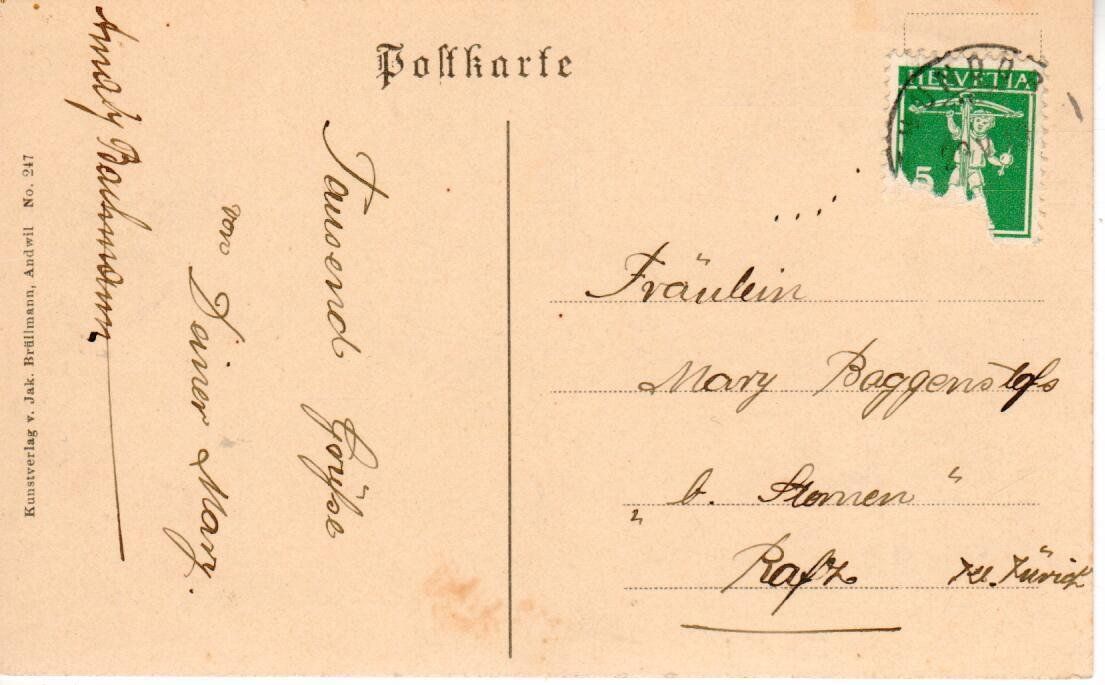 Postkarte
HELVETIA
5
Tausend Grüsse
von Deiner Mary.
Bachmann
Kunstverlag v. Jak. Brüllmann, Andwil No. 247
Fräulein
Mary Baggenstoss
b. "Sternen"
Rafz Kt. Zürich